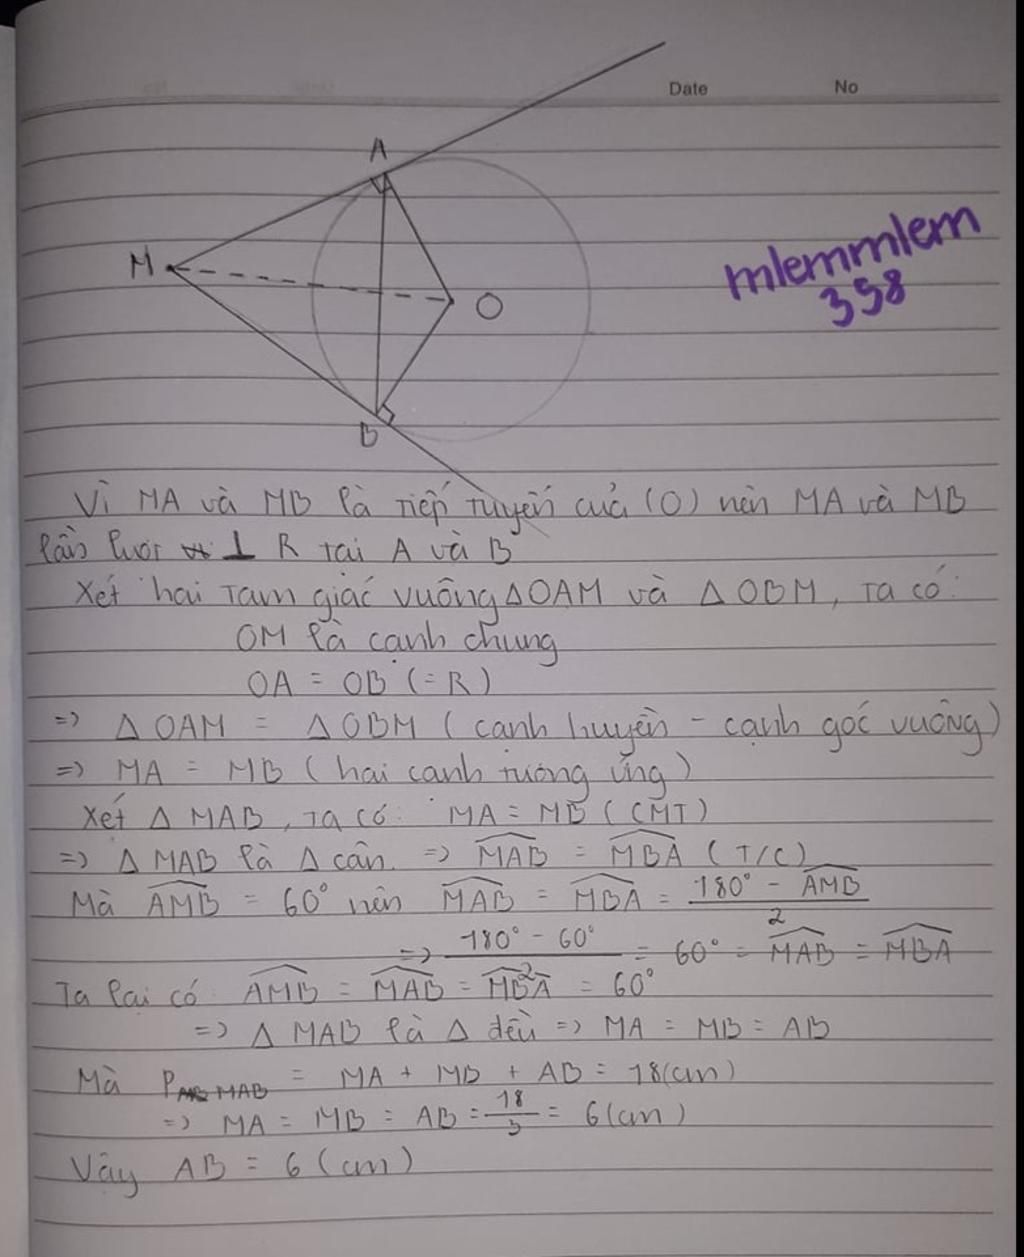 Date No
A
M
O
B
mlemmlem
358
Vì MA và MB là tiếp tuyến của (O) nên MA và MB
lần lượt ⊥ R tại A và B
Xét hai tam giác vuông ΔOAM và ΔOBM, ta có:
OM là cạnh chung
OA = OB (=R)
=> ΔOAM = ΔOBM (cạnh huyền - cạnh góc vuông)
=> MA = MB (hai cạnh tương ứng)
Xét ΔMAB, ta có: MA = MB (CMT)
=> ΔMAB là Δ cân. => MAB = MBA (T/C)
Mà AMB = 60° nên MAB = MBA = 180° - AMB / 2
=> 180° - 60° / 2 = 60° = MAB = MBA
Ta lại có: AMB = MAB = MBA = 60°
=> ΔMAB là Δ đều => MA = MB = AB
Mà P MAB = MA + MB + AB = 18(cm)
=> MA = MB = AB = 18/3 = 6(cm)
Vậy AB = 6 (cm)